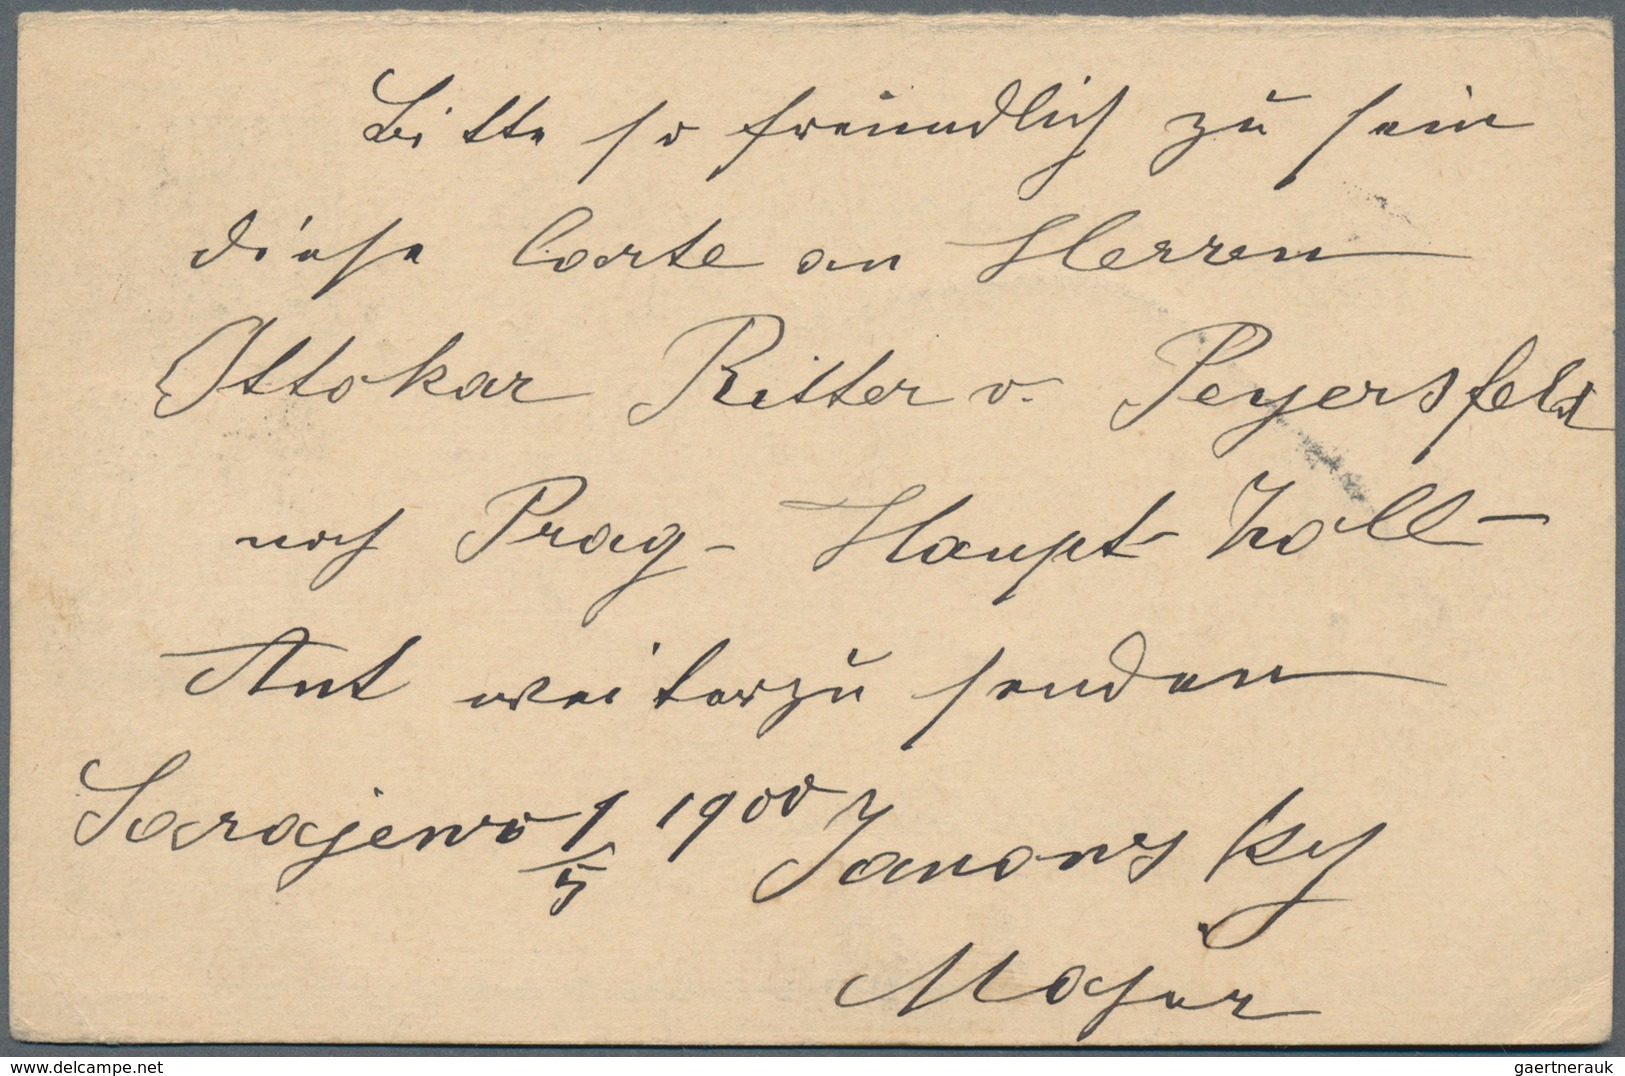 Bitte so freundlich zu sein
diese Carte an Herren
Ottokar Ritter v. Peyersfeld
nach Prag - Haupt Zoll -
Amt weiterzu senden
Sarajewo 1/5 1900 Janowsky
Major
delcampe.net
gaertnerauk